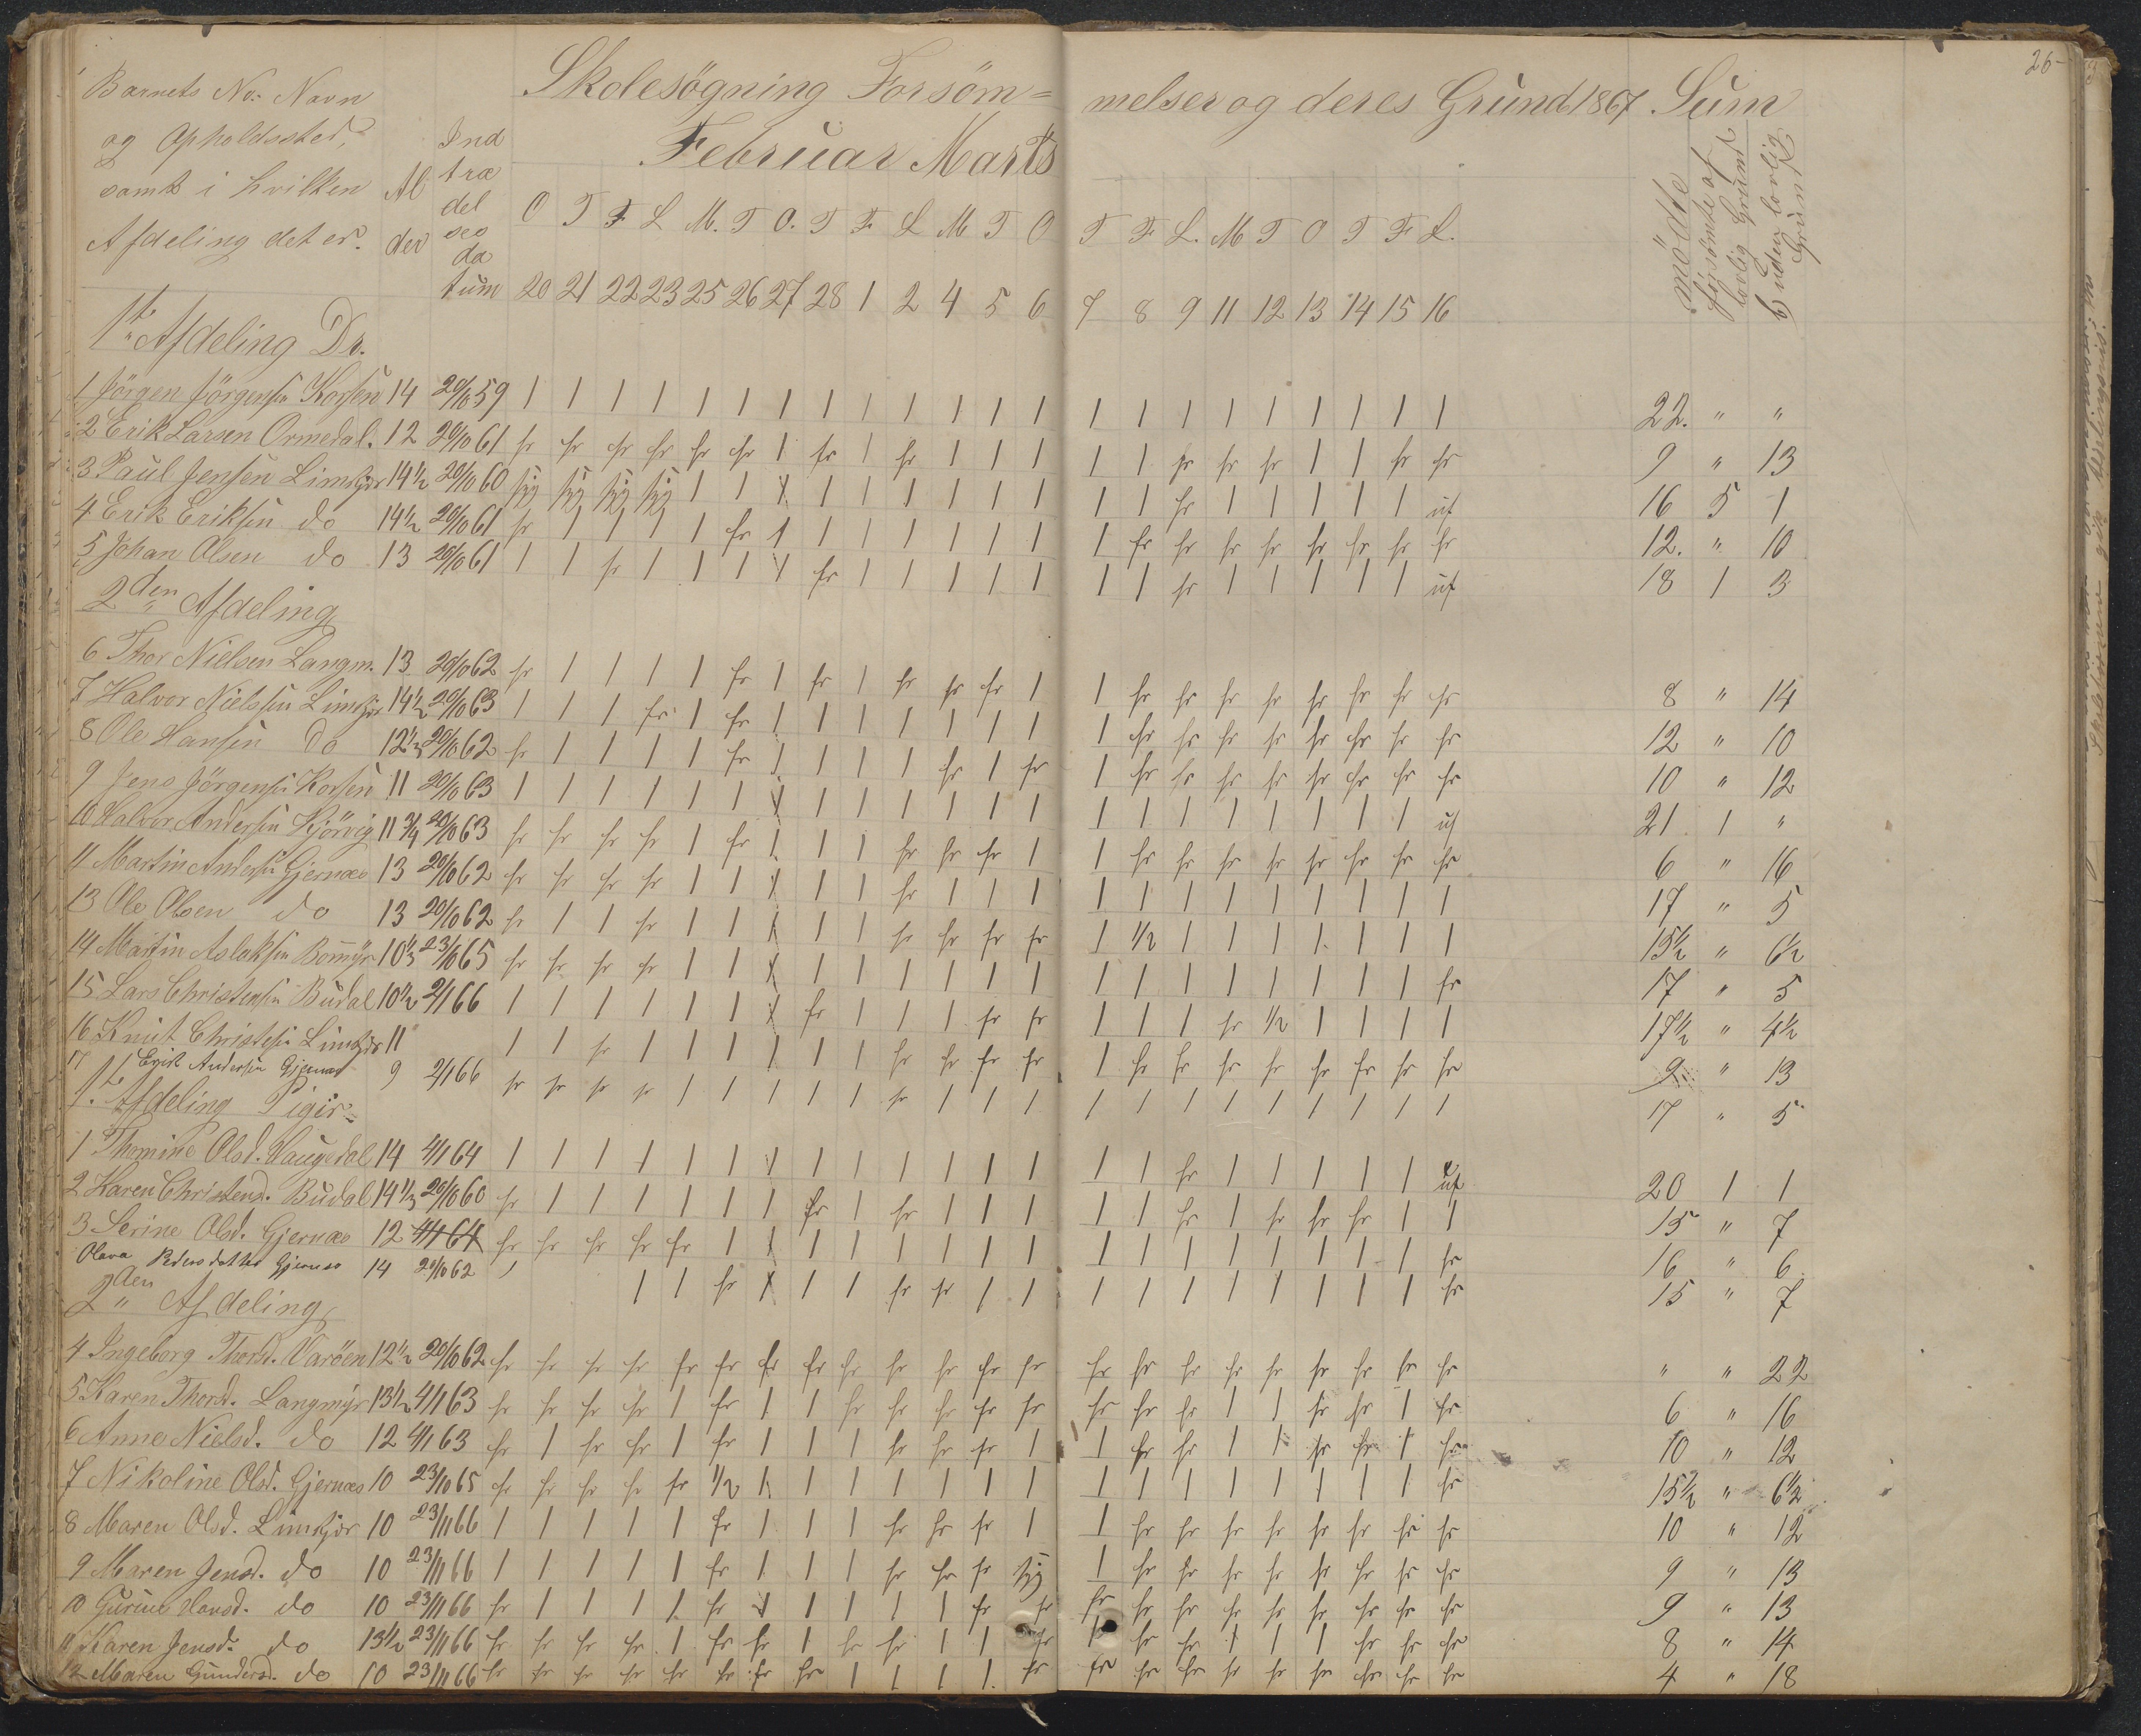 26
Skolesögning Forsöm= melser og deres Grund 1867. Sum
Barnets No: Navn
og Opholdssted,
samt i hvilken
Afdeling det er.
Al
der
Ind
træ
del
ses
da
tum
Februar Marts
O T F L M. T O. T F. L M T O T F L. M T O T F L.
20 21 22 23 25 26 27 28 1 2 4 5 6 7 8 9 11 12 13 14 15 16
mödde
forsömte af
lovlig Grund
b) uden lovlig
Grund
1ste Afdeling Dr.
1 Jörgen Jörgensen 14 20/10 59 1 1 1 1 1 1 1 1 1 1 1 1 1 1 1 1 1 1 1 1 1 1 22. " "
2 Erik Larsen Ormedal. 12 20/10 61 fr fr fr fr fr fr 1 fr 1 fr 1 1 1 1 1 fr fr fr 1 1 fr fr 9 " 13
3 Paul Jensen Limkjær 14½ 20/10 60 syg syg syg syg 1 1 1 1 1 1 1 1 1 1 1 fr 1 1 1 1 1 uf 16 5 1
4 Erik Eriksen do 14½ 20/10 61 fr 1 1 1 1 fr 1 1 1 1 1 1 1 1 fr fr fr fr fr fr fr fr 12. " 10
5 Johan Olsen do 13 20/10 61 1 1 fr 1 1 1 1 fr 1 1 1 1 1 1 1 fr 1 1 1 1 1 uf 18 1 3
2den Afdeling
6 Thor Nielsen Langm. 13 20/10 62 fr 1 1 1 1 fr 1 fr 1 fr fr fr 1 1 fr fr fr fr fr fr fr fr 8 " 14
7 Halvor Nielsen Limkjær 14½ 20/10 63 1 1 1 fr 1 fr 1 1 1 1 1 1 1 1 fr fr fr fr fr fr fr fr 12 " 10
8 Ole Hansen do 12½ 20/10 62 fr 1 1 1 1 fr 1 1 1 1 fr 1 fr 1 fr fr fr fr fr fr fr fr 10 " 12
9 Jens Jörgensen 11 20/10 63 1 1 1 1 1 1 1 1 1 1 1 1 1 1 1 1 1 1 1 1 1 uf 21 1 "
10 Halvor Andersen Kjörvig 11¾ 20/10 63 fr fr fr fr 1 fr 1 1 1 fr fr fr 1 1 fr fr fr fr fr fr fr fr 6 " 16
11 Martin Andersen Gjernæs 13 20/10 62 fr fr fr fr 1 1 1 1 1 fr 1 1 1 1 1 1 1 1 1 1 1 1 17 " 5
13 Ole Olsen do 13 20/10 62 fr 1 1 fr 1 1 1 1 1 fr fr fr fr 1 ½ 1 1 1 1 1 1 1 15½ " 6½
14 Martin Aslaksen 10½ 23/10 65 fr fr fr fr 1 1 1 1 1 1 1 1 1 1 1 1 1 1 1 1 1 fr 17 " 5
15 Lars Christensen Budal 10½ 2/1 66 1 1 1 1 1 1 1 fr 1 1 1 fr fr 1 1 1 fr ½ 1 1 1 1 17½ " 4½
16 Knut Limkjær 11 1 1 fr 1 1 1 1 1 1 fr fr fr fr 1 fr fr fr fr fr fr fr fr 9 " 13
17 Andersen Gjernæs 9 2/1 66 fr fr fr fr 1 1 1 1 1 fr 1 1 1 1 1 1 1 1 1 1 1 1 17 " 5
1ste Afdeling Piger
1 Thomine Olsd. Haugedal 14 4/1 64 1 1 1 1 1 1 1 1 1 1 1 1 1 1 1 fr 1 1 1 1 1 uf 20 1 1
2 Karen Christend. Budal 14½ 20/10 60 fr 1 1 1 1 1 1 fr 1 fr 1 1 1 1 1 fr 1 fr fr fr 1 1 15 " 7
3 Serine Olsd. Gjernæs 12 4/1 64 fr fr fr fr fr 1 1 1 1 1 1 1 1 1 1 1 1 1 1 1 1 fr 16 " 6
Olava Pedersdatter Gjernæs 14 20/10 62 1 1 1 fr 1 1 1 fr fr 1 1 1 1 1 1 1 1 1 1 fr 15 " 7
2den Afdeling
4 Ingeborg Thorsd. Varöen 12½ 20/10 62 fr fr fr fr fr fr fr fr fr fr fr fr fr fr fr fr fr fr fr fr fr fr " " 22
5 Karen Thorsd. Langmyr 13½ 4/1 63 fr fr fr fr 1 fr 1 1 fr fr fr fr fr fr fr fr 1 1 fr fr 1 fr 6 " 16
6 Anne Nielsd. do 12 4/1 63 fr 1 fr fr 1 fr 1 1 1 fr fr fr 1 1 fr fr 1 1 fr fr 1 fr 10 " 12
7 Nikoline Olsd. Gjernæs 10 23/10 65 fr fr fr fr fr ½ 1 1 1 1 1 1 1 1 1 1 1 1 1 1 1 fr 15½ " 6½
8 Maren Olsd. Limkjær 10 23/11 66 1 1 1 1 1 fr 1 1 1 fr fr fr 1 1 fr fr fr fr fr fr fr fr 10 " 12
9 Maren Jensd. do 10 23/11 66 1 1 1 1 1 fr 1 1 1 fr fr fr syg 1 fr fr fr fr fr fr fr fr 9 " 13
10 Gurine Hansd. do 10 23/11 66 fr 1 1 1 1 fr 1 1 1 1 1 fr fr fr fr fr fr fr fr fr fr fr 9 " 13
11 Karen Jensd. do 13½ 23/11 66 fr fr fr fr 1 fr fr 1 fr fr 1 1 fr 1 fr fr 1 1 1 fr fr fr 8 " 14
12 Maren Gundersd. do 10 23/11 66 fr fr fr fr fr fr fr fr 1 1 1 1 fr fr fr fr fr fr fr fr fr fr 4 " 18